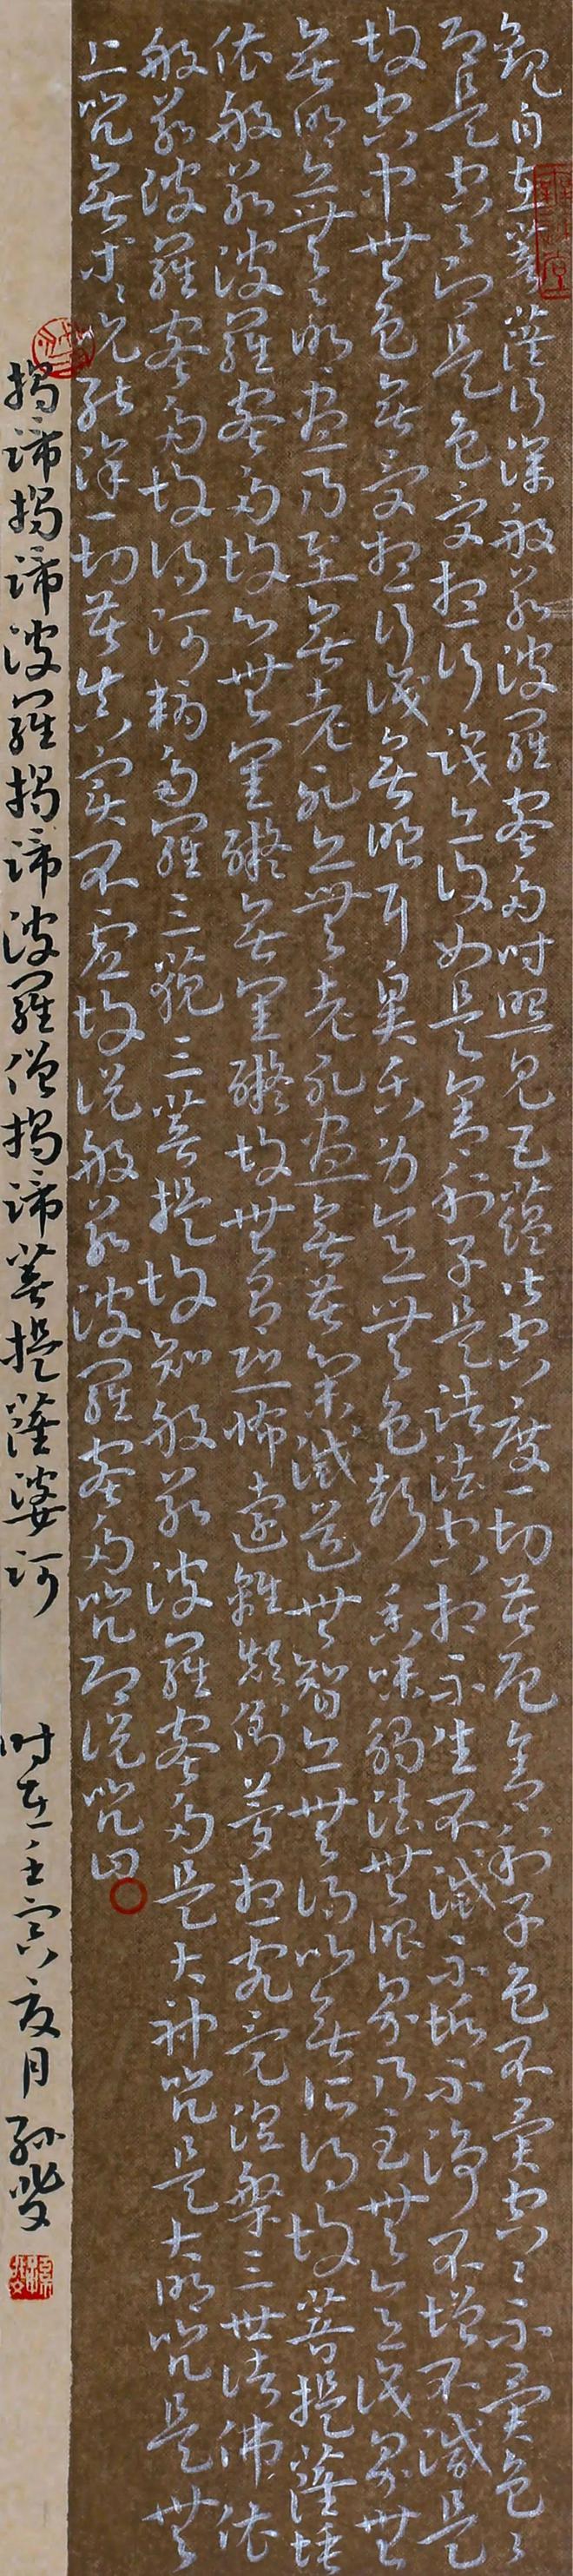 觀自在菩薩行深般若波羅蜜多時照見五蘊皆空度一切苦厄舍利子色不異空々不異色々
即是空々即是色受想行識亦復如是舍利子是諸法空相不生不滅不垢不淨不增不減是
故空中無色無受想行識無眼耳鼻舌身意無色聲香味觸法無眼界乃至無意識界無
無明亦無々明盡乃至無老死亦無老死盡無苦集滅道無智亦無得以無所得故菩提薩埵
依般若波羅蜜多故心無罣礙無罣礙故無有恐怖遠離顛倒夢想究竟涅槃三世諸佛依
般若波羅蜜多故得阿耨多羅三藐三菩提故知般若波羅蜜多是大神咒是大明咒是無
上咒無等々咒能除一切苦真實不虛故說般若波羅蜜多咒即說咒曰
揭諦揭諦波羅揭諦波羅僧揭諦菩提薩婆訶 時在壬寅夏月 孫